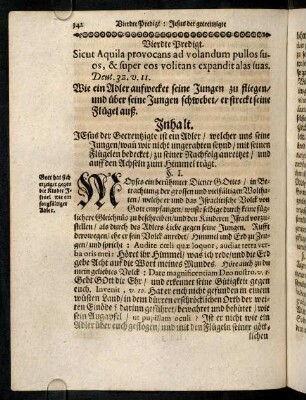 342 Vierdte Predigt: Jesus der gecreitzigte
Vierdte Predigt.
Sicut Aquila provocans ad volandum pullos suos,
& super eos volitans expandit alas suas.
Deut. 32. v. 11.
Wie ein Adler auffwecket seine Jungen zu fliegen/
und über seine Jungen schwebet/ er strecket seine
Flügel auß.
Inhalt.
JEsus der Gecreutzigte ist ein Adler/ welcher uns seine
Jungen/wañ wir nicht ungerahten seynd/ mit seinen
Flügelen bedecket/ zu seiner Nachfolg anreitzet/ und
auff den Achslen zum Himmel trägt.
§. I.
Gott hat sich
erzeiget gegen
die Kinder Israel
wie ein
sorgfältiger
Adler.
MOyses ein berühmter Diener Gottes/ in Betrachtung
der grossen und vielfältigen Wolthaten/
welche er und das Israelitische Volck von
Gott empfangen/ wuste selbige durch keine füglichere
Gleichnuß zu beschreiben/ und den Kinderen Israel vorzustellen/
als durch des Adlers Liebe gegen seine Jungen. Rufft
derowegen/ ehe er sein Volck anredet/ Himmel und Erd zu Zeugen/
und spricht: Audite cœli quæ loquor, audiat terra verba
oris mei: Höret ihr Himmel/ was ich rede/und die Erd
gebe Acht auff die Wort meines Munds. Hierauff auch zu dem
mein geliebtes Volck: Date magnificentiam Deo nostro. v. 3.
Gebt Gott die Ehr/ und erkennet seine Gütigkeit gegen
euch. Invenit, v. 10. Hat er euch nicht gefunden in einem
wüsten Land/ in dem dürren erschröcklichen Orth der weiten
Einöde? darinn geführet/ bewahret und behütet/ wie
sein Augapfel/ ut pupillam oculi? Ist er nicht wie ein
Adler über euch geflogen/ und mit den Flügeln seiner göttlichen